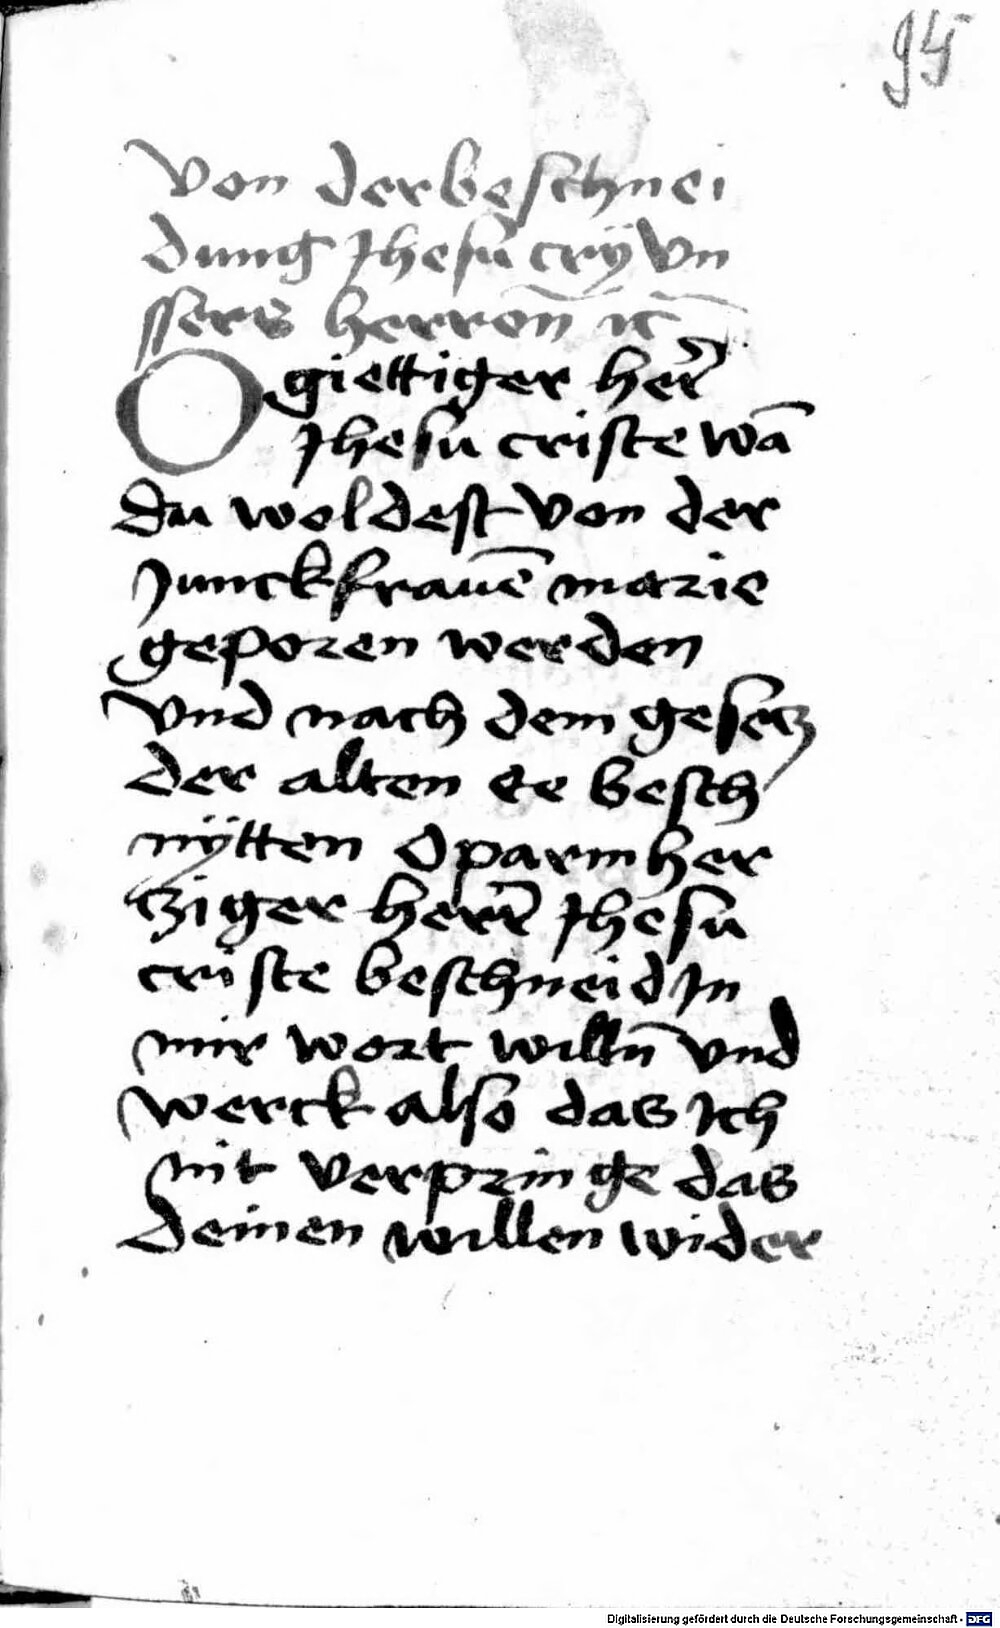 95
Von der beschnei
dung Jhesu crÿ vn
ssers herronn̄ ꝛc̄
O giettiger her̄
Jhesu criste wā
du woldest von der
Junckfrauē marie
geporen werden
vnd nach dem gesetz
der alten ee besch
nÿtten O parmher
tziger herr̄ Jhesu
criste beschneid Jn
mir wort willn̄ vnd
werck also das Ich
nit verpringe das
deinen willen wider
Digitalisierung gefördert durch die Deutsche Forschungsgemeinschaft - DFG